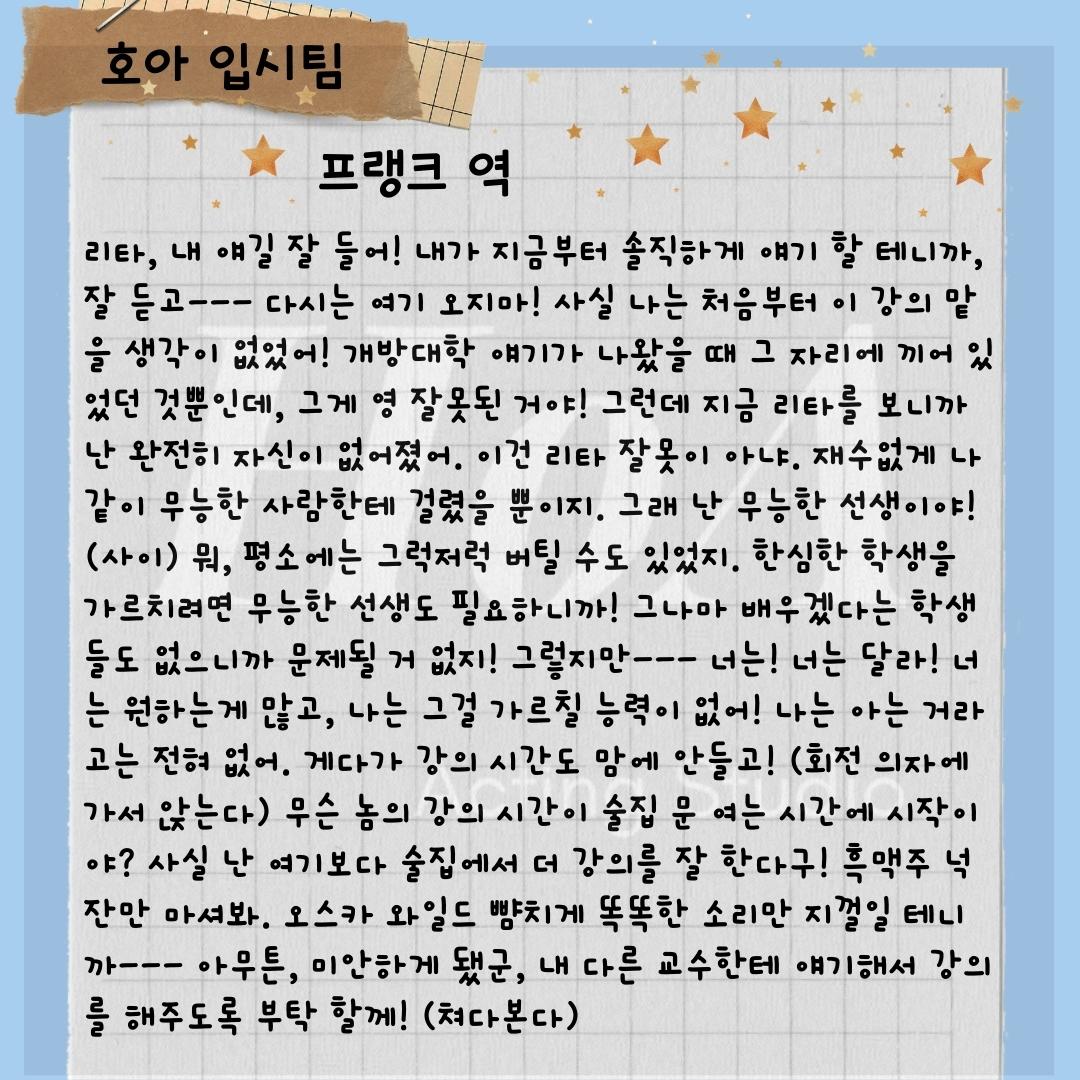 호아 입시팀
프랭크 역
리타, 내 얘길 잘 들어! 내가 지금부터 솔직하게 얘기 할 테니까,
잘 듣고--- 다시는 여기 오지마! 사실 나는 처음부터 이 강의 맡
을 생각이 없었어! 개방대학 얘기가 나왔을 때 그 자리에 끼어 있
었던 것뿐인데, 그게 영 잘못된 거야! 그런데 지금 리타를 보니까
난 완전히 자신이 없어졌어. 이건 리타 잘못이 아냐. 재수없게 나
같이 무능한 사람한테 걸렸을 뿐이지. 그래 난 무능한 선생이야!
(사이) 뭐, 평소에는 그럭저럭 버틸 수도 있었지. 한심한 학생을
가르치려면 무능한 선생도 필요하니까! 그나마 배우겠다는 학생
들도 없으니까 문제될 거 없지! 그렇지만--- 너는! 너는 달라! 너
는 원하는게 많고, 나는 그걸 가르칠 능력이 없어! 나는 아는 거라
고는 전혀 없어. 게다가 강의 시간도 맘에 안들고! (회전 의자에
가서 앉는다) 무슨 놈의 강의 시간이 술집 문 여는 시간에 시작이
야? 사실 난 여기보다 술집에서 더 강의를 잘 한다구! 흑맥주 넉
잔만 마셔봐. 오스카 와일드 뺨치게 똑똑한 소리만 지껄일 테니
까--- 아무튼, 미안하게 됐군, 내 다른 교수한테 얘기해서 강의
를 해주도록 부탁 할께! (쳐다본다)
HoA
Acting Studio